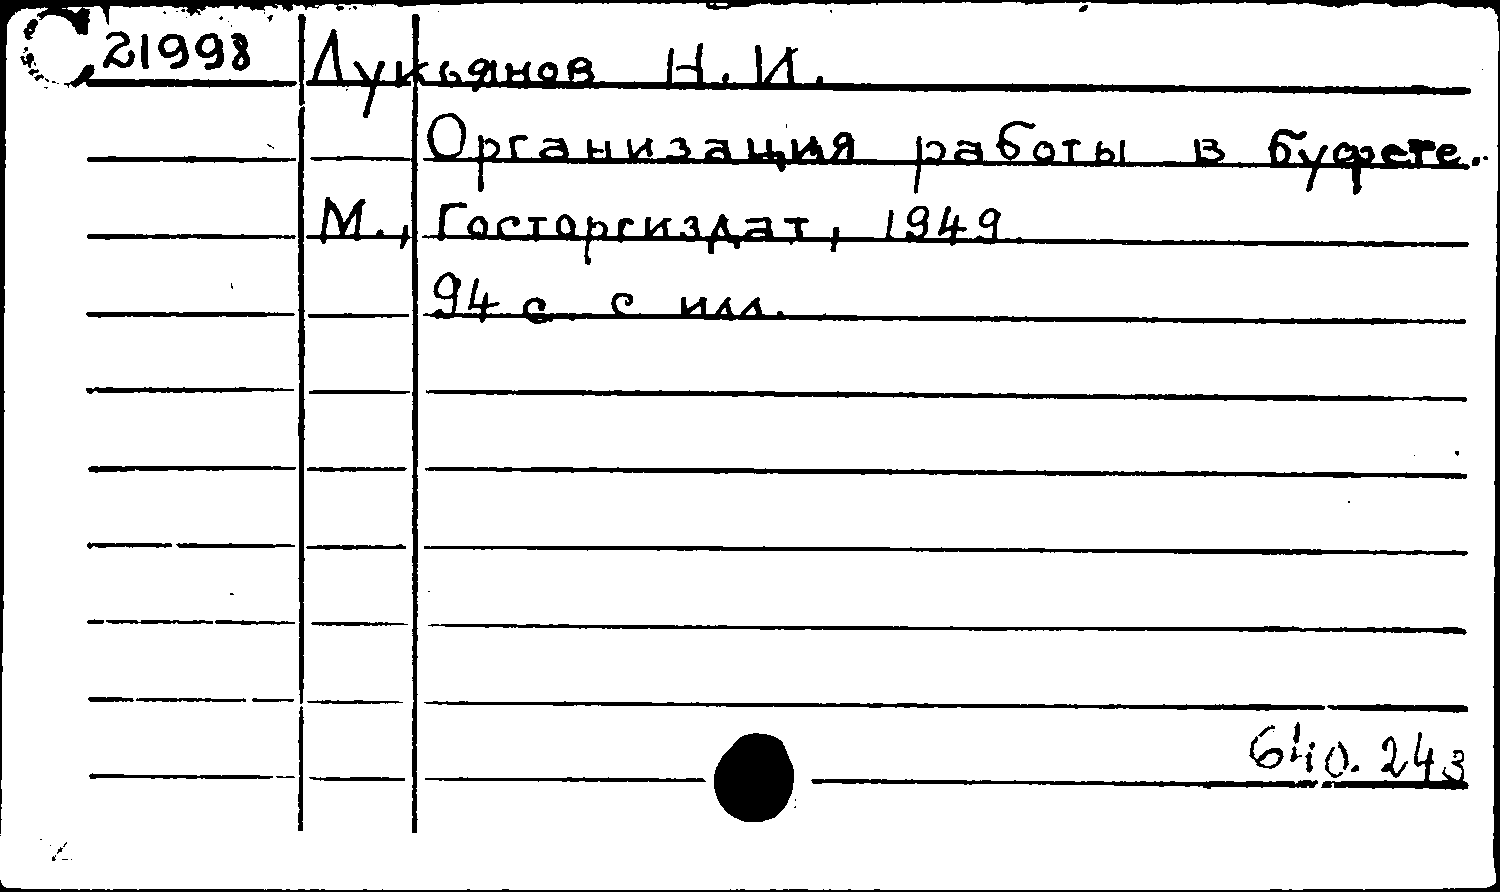 С 21998 Лукьянов Н. И.
Организация работы в буфете.
М., Госторгиздат, 1949
94 с. с илл.
640.243